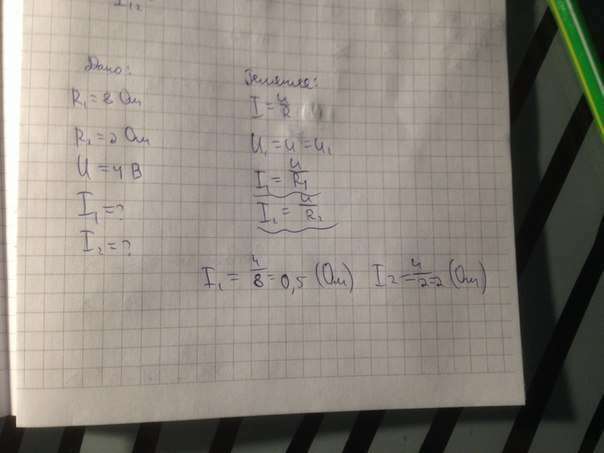 I₁₂
Дано:
R₁ = 8 Ом
R₂ = 2 Ом
U = 4 В
I₁ = ?
I₂ = ?
Решение:
I = U/R
U₁ = U = U₂
I₁ = U/R₁
I₂ = U/R₂
I₁ = 4/8 = 0,5 (Ом) I₂ = 4/2 = 2 (Ом)